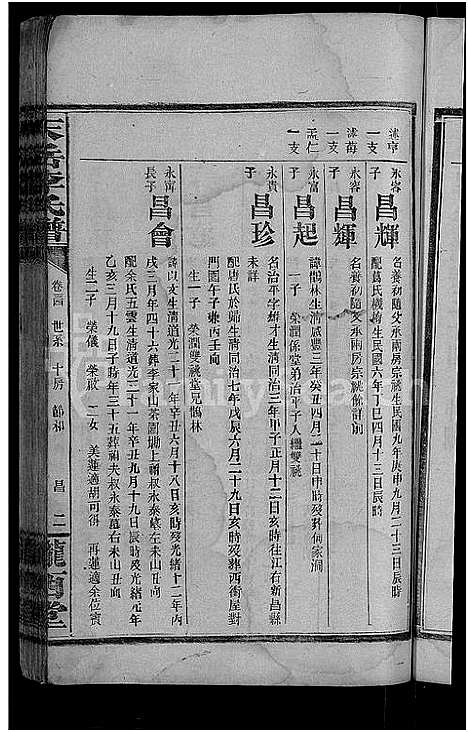 述亭一支
永容子 昌輝
名養初隨父承兩房宗祧生民國九年庚申九月二十三日辰時
配葛氏機梅生民國六年丁巳四月十三日辰時
述梅一支
永容子 昌輝
名養初隨父承兩房宗祧餘詳前
孟仁一支
永富子 昌起
諱鵲林生清咸豐三年癸丑四月二十日申時歿葬何家洞
一子 榮潤係堂弟治平子入繼雙祧
永貴子 昌珍
名治平字雄才生清同治三年甲子正月十二日亥時往江右新昌縣
未詳
配唐氏於歸生清同治七年戊辰六月二十九日亥時歿葬西衝屋對
門園午子兼丙壬向
生一子 榮潤雙祧堂兄鵲林
永甯長子 昌會
諱以文生清道光二十一年辛丑六月十八日亥時歿光緒十二年丙
戌三月年四十六葬李家山茶園坳上禰叔永泰墓左未山丑向
配余氏五雲生清道光二十一年辛丑三月二十日辰時歿光緒元年
乙亥三月十九日子時年三十五葬禰夫叔永泰墓右未山丑向
生二子 榮儀 榮政 二女 美蓮適胡可倂 再蓮適余位賓
李氏譜
卷六四 世系 十房 節和
昌 二
隴西堂